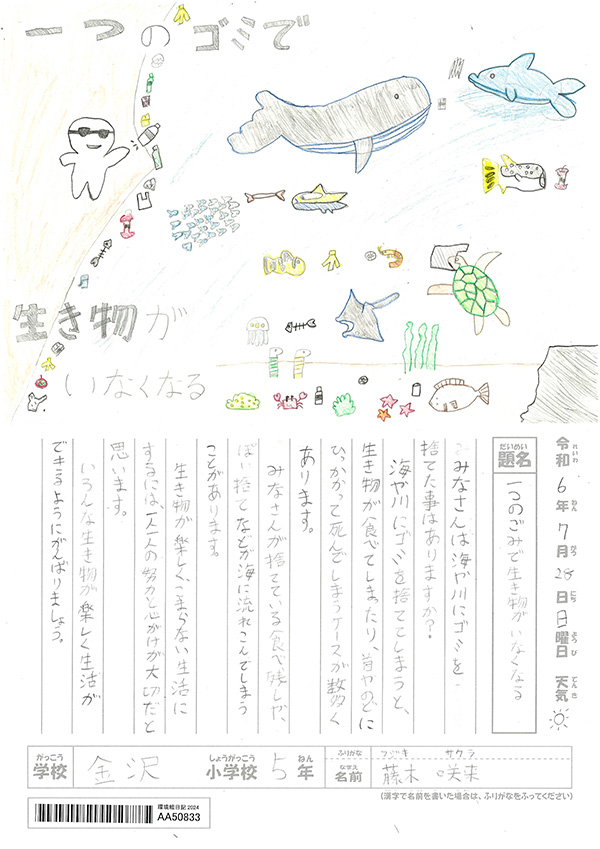 一つのゴミで
生き物が
いなくなる
令和6年7月28日日曜日 天気
れいわ ねん がつ にち ようび てんき
だいめい
題名 一つのごみで生き物がいなくなる
みなさんは海や川にゴミを
捨てた事はありますか？
海や川にゴミを捨ててしまうと、
生き物が食べてしまったり、首やのどに
ひっかかって死んでしまうケースが数多く
あります。
みなさんが捨てている食べ残しや、
ぽい捨てなどが海に流れこんでしまう
ことがあります。
生き物が楽しく、こまらない生活に
するには、一人一人の努力と心がけが大切だと
思います。
いろんな生き物が楽しく生活が
できるようにがんばりましょう。
がっこう しょうがっこう ねん ふりがな フジキ サクラ
学校 金沢 小学校 5年 なまえ 名前 藤木 咲来
(漢字で名前を書いた場合は、ふりがなをふってください)
環境絵日記 2024
AA50833